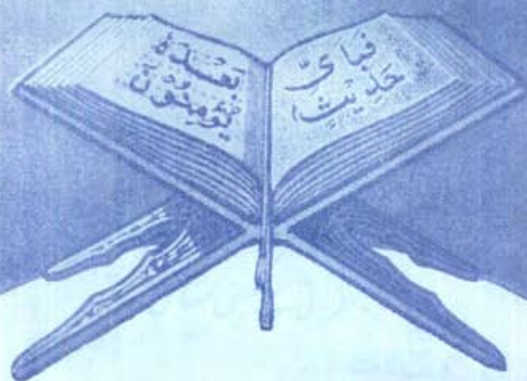 فَبِاَيِّ
حَدِيْثٍۭ
بَعْدَهٗ
يُؤْمِنُوْنَ